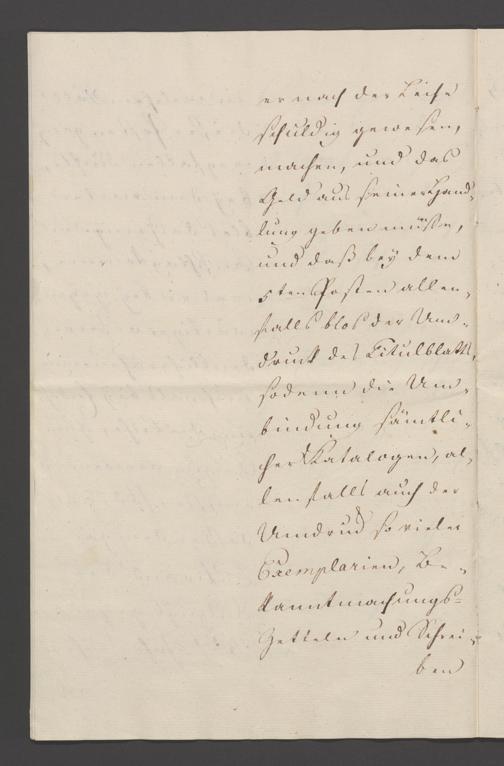 er nach der Reihe
schuldig gewesen,
machen, und das
Geld aus seiner Hand-
lung geben müsse,
und daß bey dem
5ten Posten allen-
falls blos der Um-
druck des Titulblatts,
sodenn die Um-
bindung sämtli-
cher Katalogen, al-
lenfalls auch der
Umdruck so vieler
Exemplarien, Be-
kanntmachungs-
Zetteln und Schrei-
ben